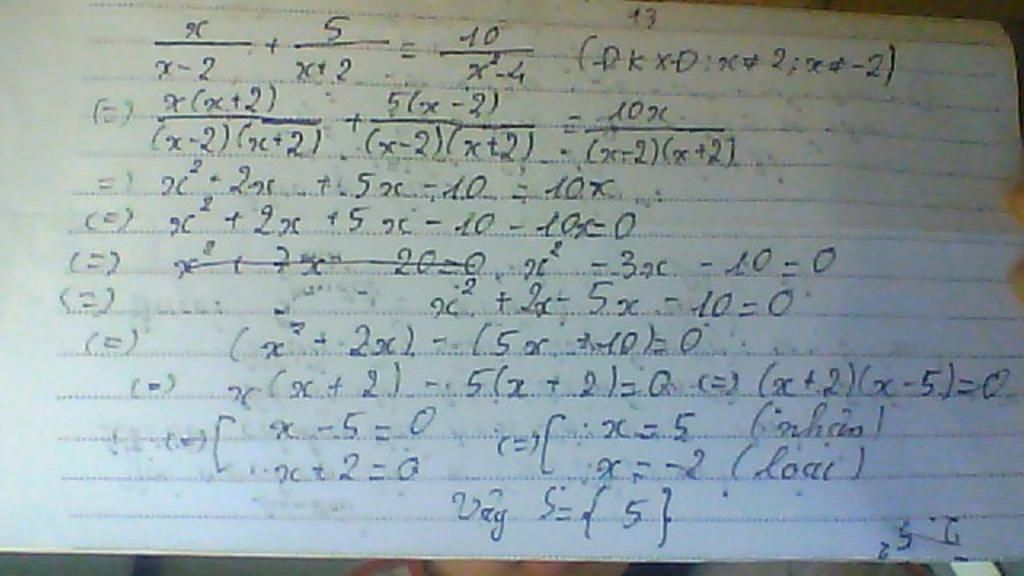 13
x/(x-2) + 5/(x+2) = 10/(x²-4) (ĐKXĐ: x≠2; x≠-2)
(=) x(x+2)/((x-2)(x+2)) + 5(x-2)/((x-2)(x+2)) = 10x/((x-2)(x+2))
=) x² + 2x + 5x - 10 = 10x
(=) x² + 2x + 5x - 10 - 10x = 0
(=) x² + 7x - 20 = 0 x² - 3x - 10 = 0
(=) x² + 2x - 5x - 10 = 0
(=) (x² + 2x) - (5x + 10) = 0
(=) x(x+2) - 5(x+2) = 0 (=) (x+2)(x-5) = 0
(=) [ x - 5 = 0 (=) [ x = 5 (nhận)
x + 2 = 0 x = -2 (loại)
Vậy S = {5}